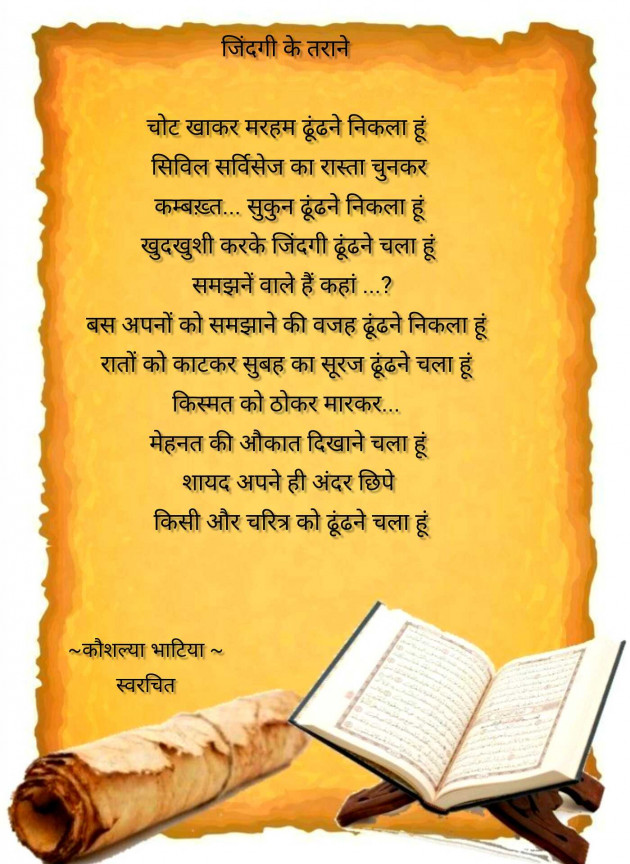 जिंदगी के तराने
चोट खाकर मरहम ढूंढने निकला हूं
सिविल सर्विसेज का रास्ता चुनकर
कम्बख़्त... सुकुन ढूंढने निकला हूं
खुदखुशी करके जिंदगी ढूंढने चला हूं
समझनें वाले हैं कहां ...?
बस अपनों को समझाने की वजह ढूंढने निकला हूं
रातों को काटकर सुबह का सूरज ढूंढने चला हूं
किस्मत को ठोकर मारकर...
मेहनत की औकात दिखाने चला हूं
शायद अपने ही अंदर छिपे
किसी और चरित्र को ढूंढने चला हूं
~कौशल्या भाटिया ~
स्वरचित